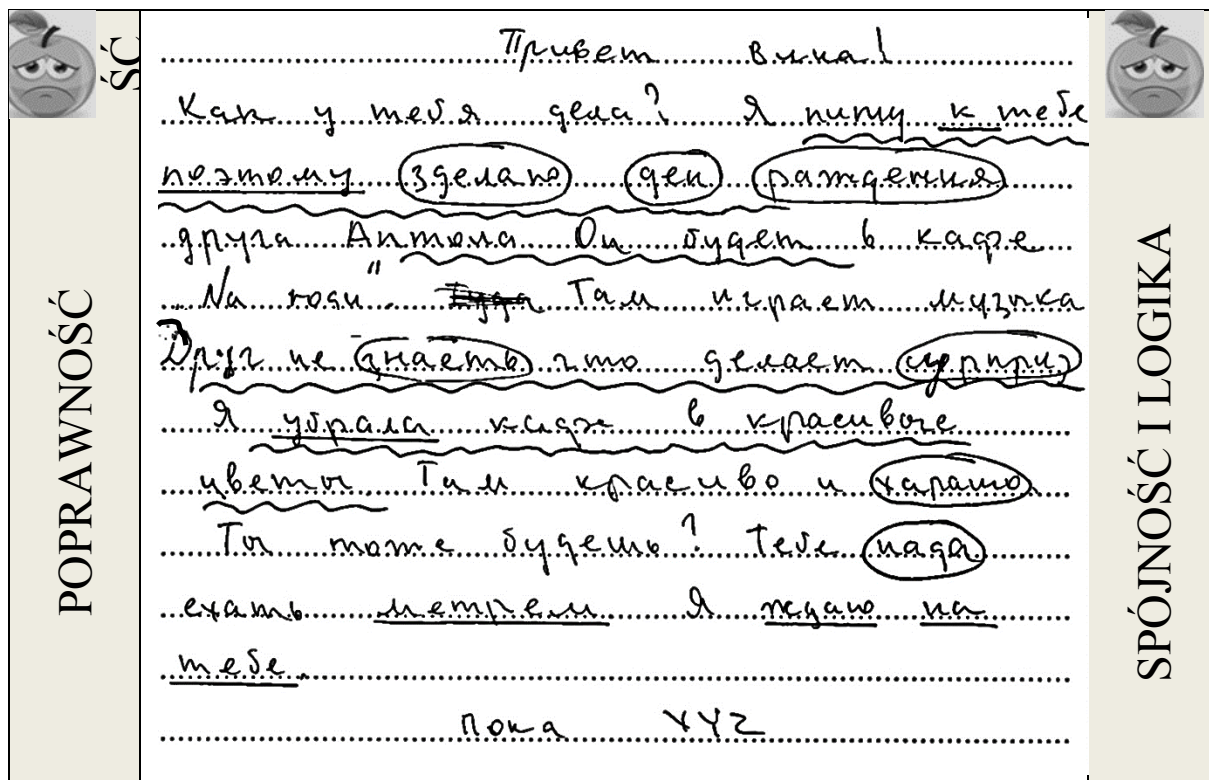 POPRAWNOŚĆ
ŚĆ
Привет Вика!
Как у тебя дела? Я пишу к тебе
поэтому зделаю ден раждения
друга Антола Он будет в кафе
"На роги". Там играет музыка
Друг не знаеть что делает сурприз
Я убрала кафе в красивые
цветы. Там красиво и харашо.
Ты тоже будешь? Тебе нада
ехать метрем Я ждаю на
тебе.
пока XYZ
SPÓJNOŚĆ I LOGIKA